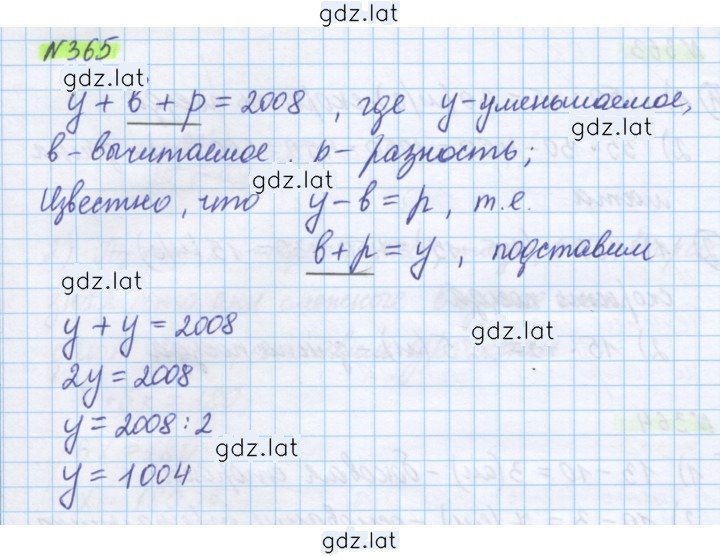 gdz.lat
№365
gdz.lat
у + в + р = 2008, где у-уменьшаемое,
gdz.lat
в-вычитаемое. р- разность;
gdz.lat
Известно, что у-в=р, т.е.
в+р=у, подставим
gdz.lat
у + у = 2008
gdz.lat
2у = 2008
у = 2008:2
gdz.lat
у = 1004
gdz.lat